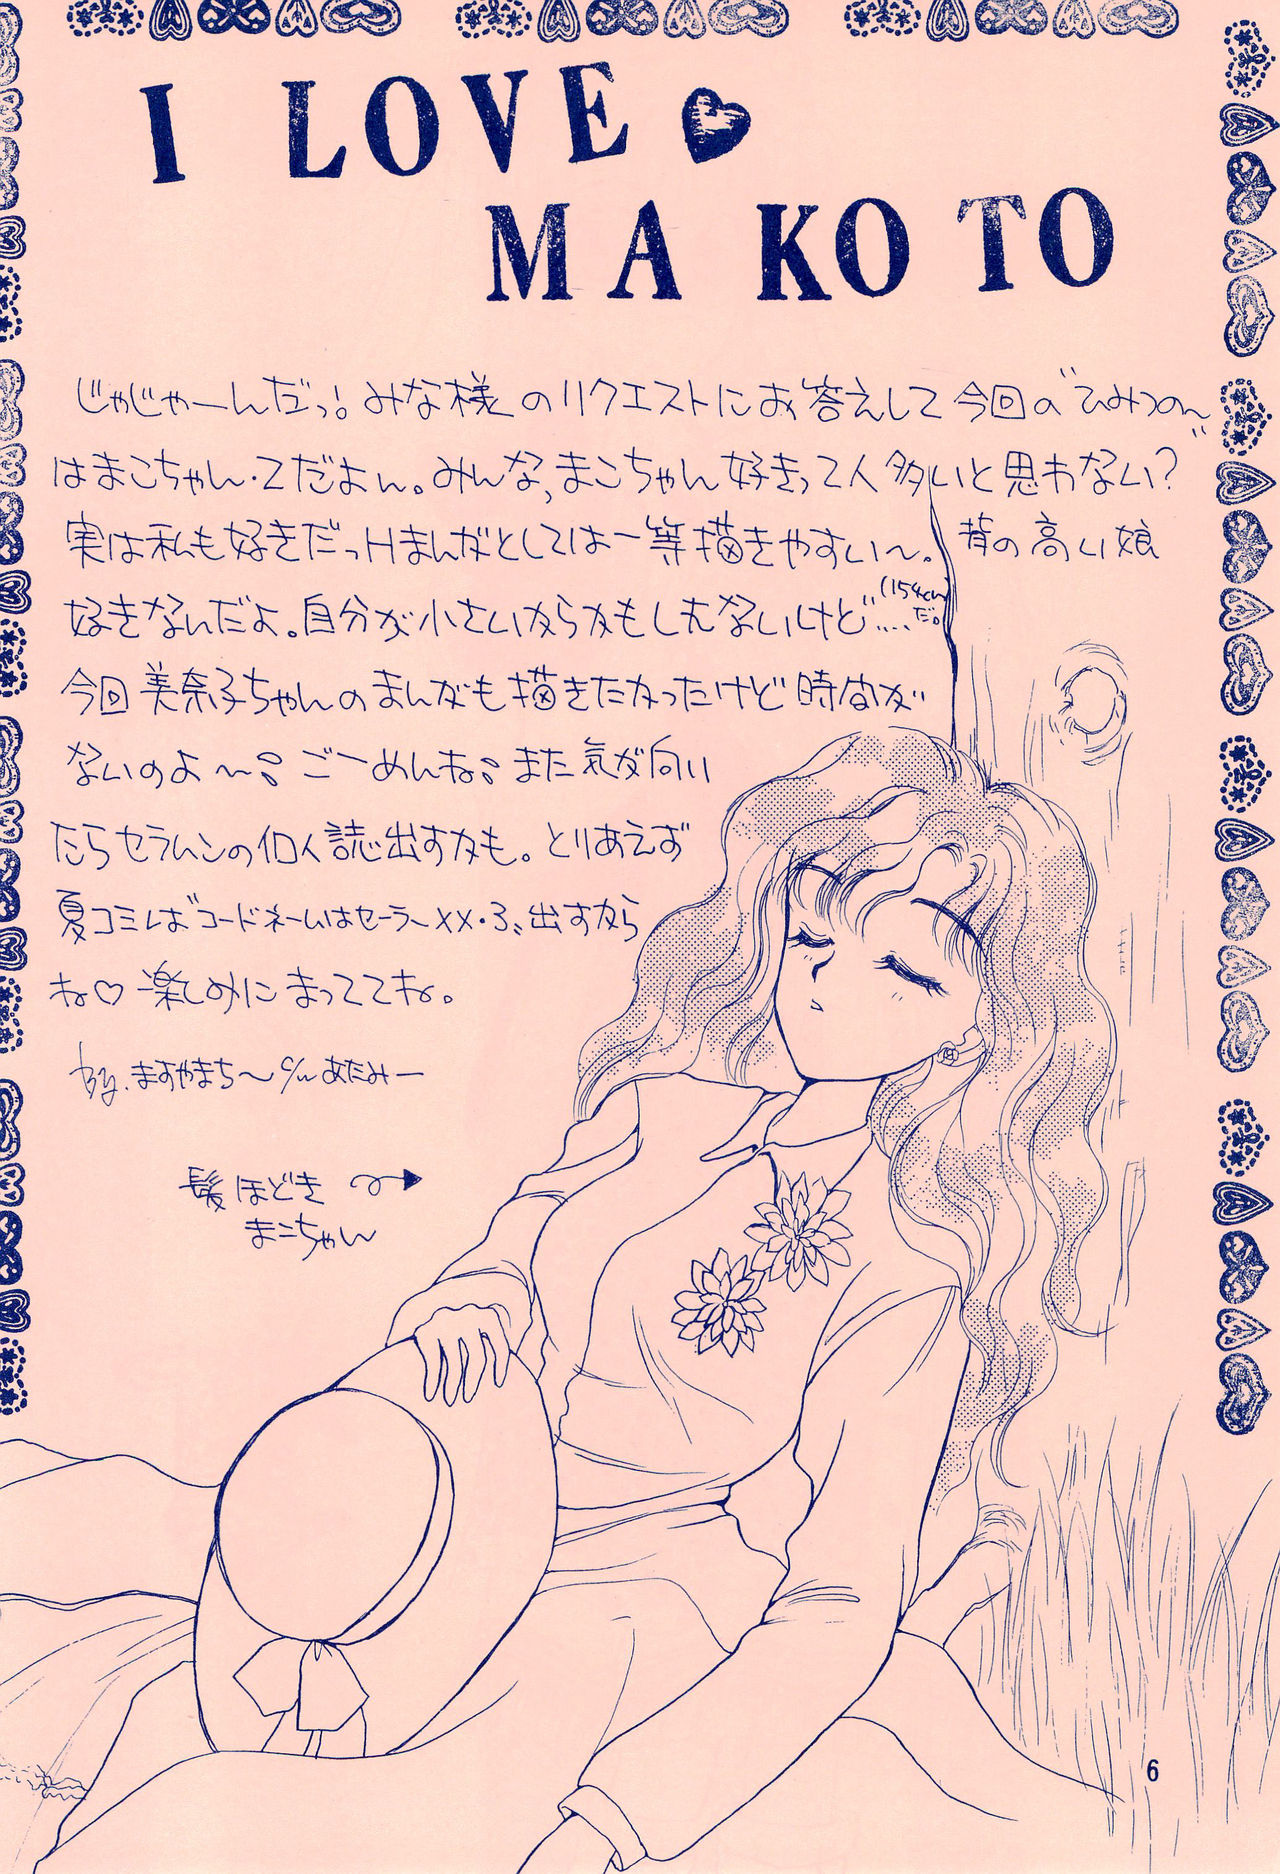 I LOVE
MAKOTO
じゃじゃーんだっ! みな様のリクエストにお答えして今回の"ひみつの〜"
はまこちゃん・Zだよん。みんな、まこちゃん好きって人多いと思わない?
実は私も好きだっHまんがとしては一等描きやすい〜。背の高い娘
好きなんだよ。自分が小さいからかもしんないけど‥‥(154cmだ。)
今回美奈子ちゃんのまんがも描きたかったけど時間が
ないのよ〜 ごーめんね また気が向い
たらセラムンの個人誌出すかも。とりあえず
夏コミには"コードネームはセーラーXX・3"出すから
ね♡楽しみにまっててね。
by.ますやまち〜 あたみー
髪ほどき
まこちゃん
6